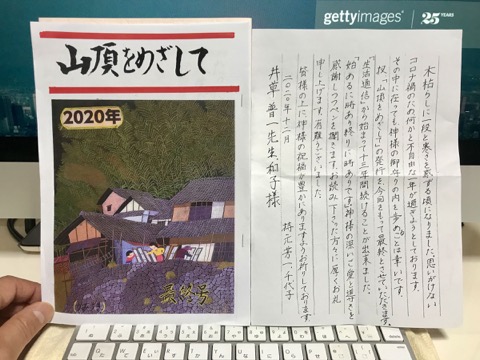 gettyimages®
25 YEARS
山頂をめざして
2020年
最終号
木枯らしに一段と寒さを感ずる頃になりました。思いがけない
コロナ禍のため何かと不自由な一年が過ぎようとしております。
その中に在っても神様の御守りの内を歩めることは幸いです。
扨「山頂をめざして」の発行を今回をもって最終とさせていただきます。
「生活通信」から始まって十三年間続けることが出来ました。
「始めるに時あり終りに時あり」です。神様の深いご愛と導きを
感謝しつつペンを擱きます。お読み下さった方々に厚くお礼
申し上げます。有難うございました。
皆様の上に神様の祝福が豊かにありますようお祈りしております。
二〇二〇年十二月
千代子
井草晋一先生、和子様